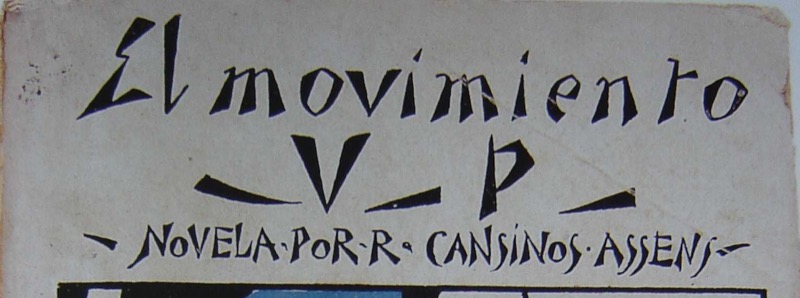 El movimiento
V_P_
NOVELA·POR·R· CANSINOS·ASSENS